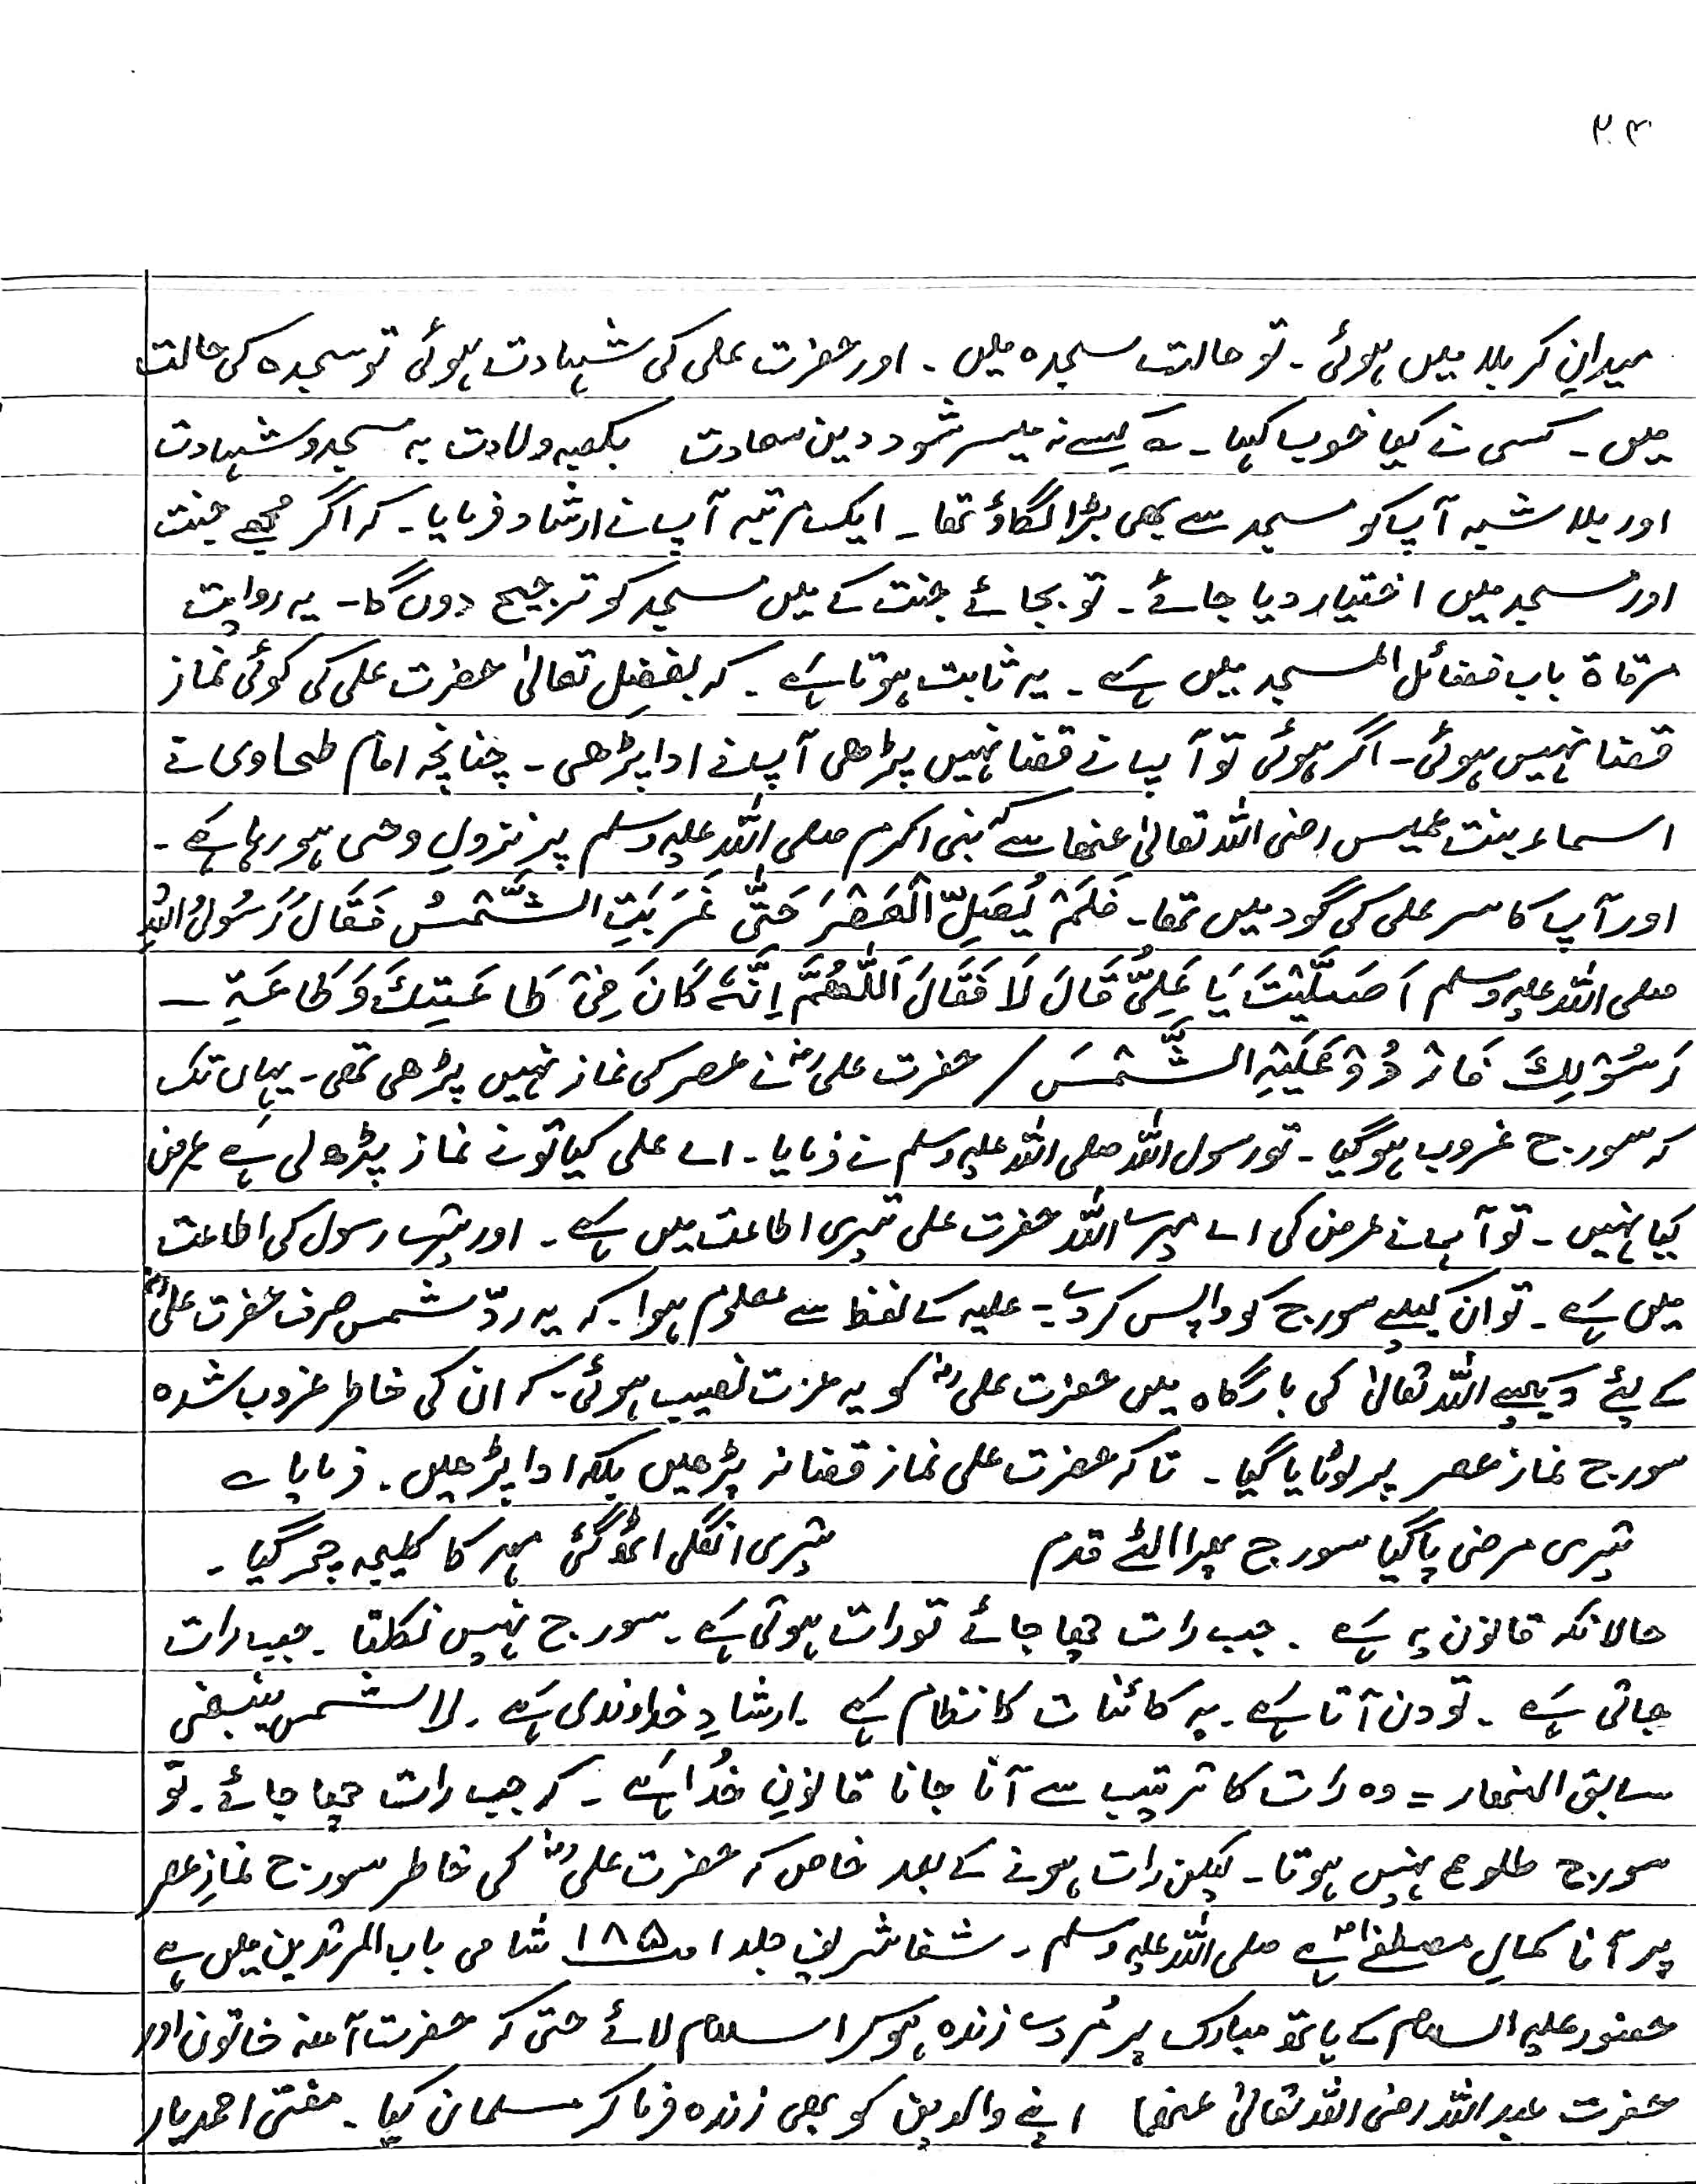 ۲۳
میدانِ کربلا میں ہوئی۔ تو حالت سجدہ میں۔ اور حضرت علی کی شہادت ہوئی تو سجدہ کی حالت
میں۔ کسی نے کیا خوب کہا۔ ؎ کسے نہ میسر شود دین سعادت بکعبہ ولادت بہ مسجد و شہادت
اور بلا شبہ آپ کو مسجد سے بھی بڑا لگاؤ تھا۔ ایک مرتبہ آپ نے ارشاد فرمایا۔ کہ اگر مجھے جنت
اور مسجد میں اختیار دیا جائے۔ تو بجائے جنت کے میں مسجد کو ترجیح دوں گا۔ یہ روایت
مرقاۃ باب فضائل المسجد میں ہے۔ یہ ثابت ہوتا ہے۔ کہ بفضلِ تعالیٰ حضرت علی کی کوئی نماز
قضا نہیں ہوئی۔ اگر ہوئی تو آپ نے قضا نہیں پڑھی آپ نے ادا پڑھی۔ چنانچہ امام طحاوی نے
اسماء بنت عمیس رضی اللہ تعالیٰ عنھا سے کہ نبی اکرم صلی اللہ علیہ وسلم پر نزولِ وحی ہو رہا ہے۔
اور آپ کا سر علی کی گود میں تھا۔ فَلَمْ یُصَلِّ الْعَصْرَ حَتّٰی غَرَبَتِ الشَّمْسُ فَقَالَ رَسُوْلُ اللہِ
صلی اللہ علیہ وسلم اَصَلَّیْتَ یَا عَلِیُّ قَالَ لَا فَقَالَ اَللّٰھُمَّ اِنَّہٗ کَانَ فِیْ طَاعَتِکَ وَطَاعَۃِ ۔
رَسُوْلِکَ فَارْدُدْ عَلَیْہِ الشَّمْسَ / حضرت علیؓ نے عصر کی نماز نہیں پڑھی تھی۔ یہاں تک
کہ سورج غروب ہوگیا۔ تو رسول اللہ صلی اللہ علیہ وسلم نے فرمایا۔ اے علی کیا تو نے نماز پڑھ لی ہے عرض
کیا نہیں۔ تو آپ نے عرض کی اے میرے اللہ حضرت علی تیری اطاعت میں ہے۔ اور تیرے رسول کی اطاعت
میں ہے۔ تو ان کیلیے سورج کو واپس کردے۔ علیہ کے لفظ سے معلوم ہوا۔ کہ یہ ردّ شمس صرف حضرت علیؓ
کے لئے دیکھیے اللہ تعالیٰ کی بارگاہ میں حضرت علیؓ کو یہ عزت نصیب ہوئی۔ کہ ان کی خاطر غروب شدہ
سورج نماز عصر پر لوٹایا گیا۔ تاکہ حضرت علی نماز قضا نہ پڑھیں بلکہ ادا پڑھیں۔ فرمایا ؎
تیری مرضی پا گیا سورج پھرا الٹے قدم تیری انگلی اٹھ گئی مہر کا کلیجہ چر گیا۔
حالانکہ قانون یہ ہے۔ جب رات چھا جائے تو رات ہوتی ہے۔ سورج نہیں نکلتا۔ جب رات
جاتی ہے۔ تو دن آتا ہے۔ یہ کائنات کا نظام ہے۔ ارشادِ خداوندی ہے۔ لا الشمس ینبغی
سابق النھار = وہ رات کا ترتیب سے آنا جانا قانونِ خُدا ہے۔ کہ جب رات چھا جائے۔ تو
سورج طلوع نہیں ہوتا۔ لیکن رات ہونے کے بعد خاص کہ حضرت علیؓ کی خاطر سورج نمازِ عصر
پر آنا کمالِ مصطفےٰ ہے صلی اللہ علیہ وسلم۔ شفا شریف جلد ۱ صـ ۱۸۵ شامی باب المرتدین میں ہے
حضور علیہ السلام کے ہاتھ مبارک پر مُردے زندہ ہو کر اسلام لائے حتی کہ حضرت آمنہ خاتون اور
حضرت عبد اللہ رضی اللہ تعالیٰ عنھما اپنے والدین کو بھی زندہ فرما کر مسلمان کیا۔ مفتی احمد یار